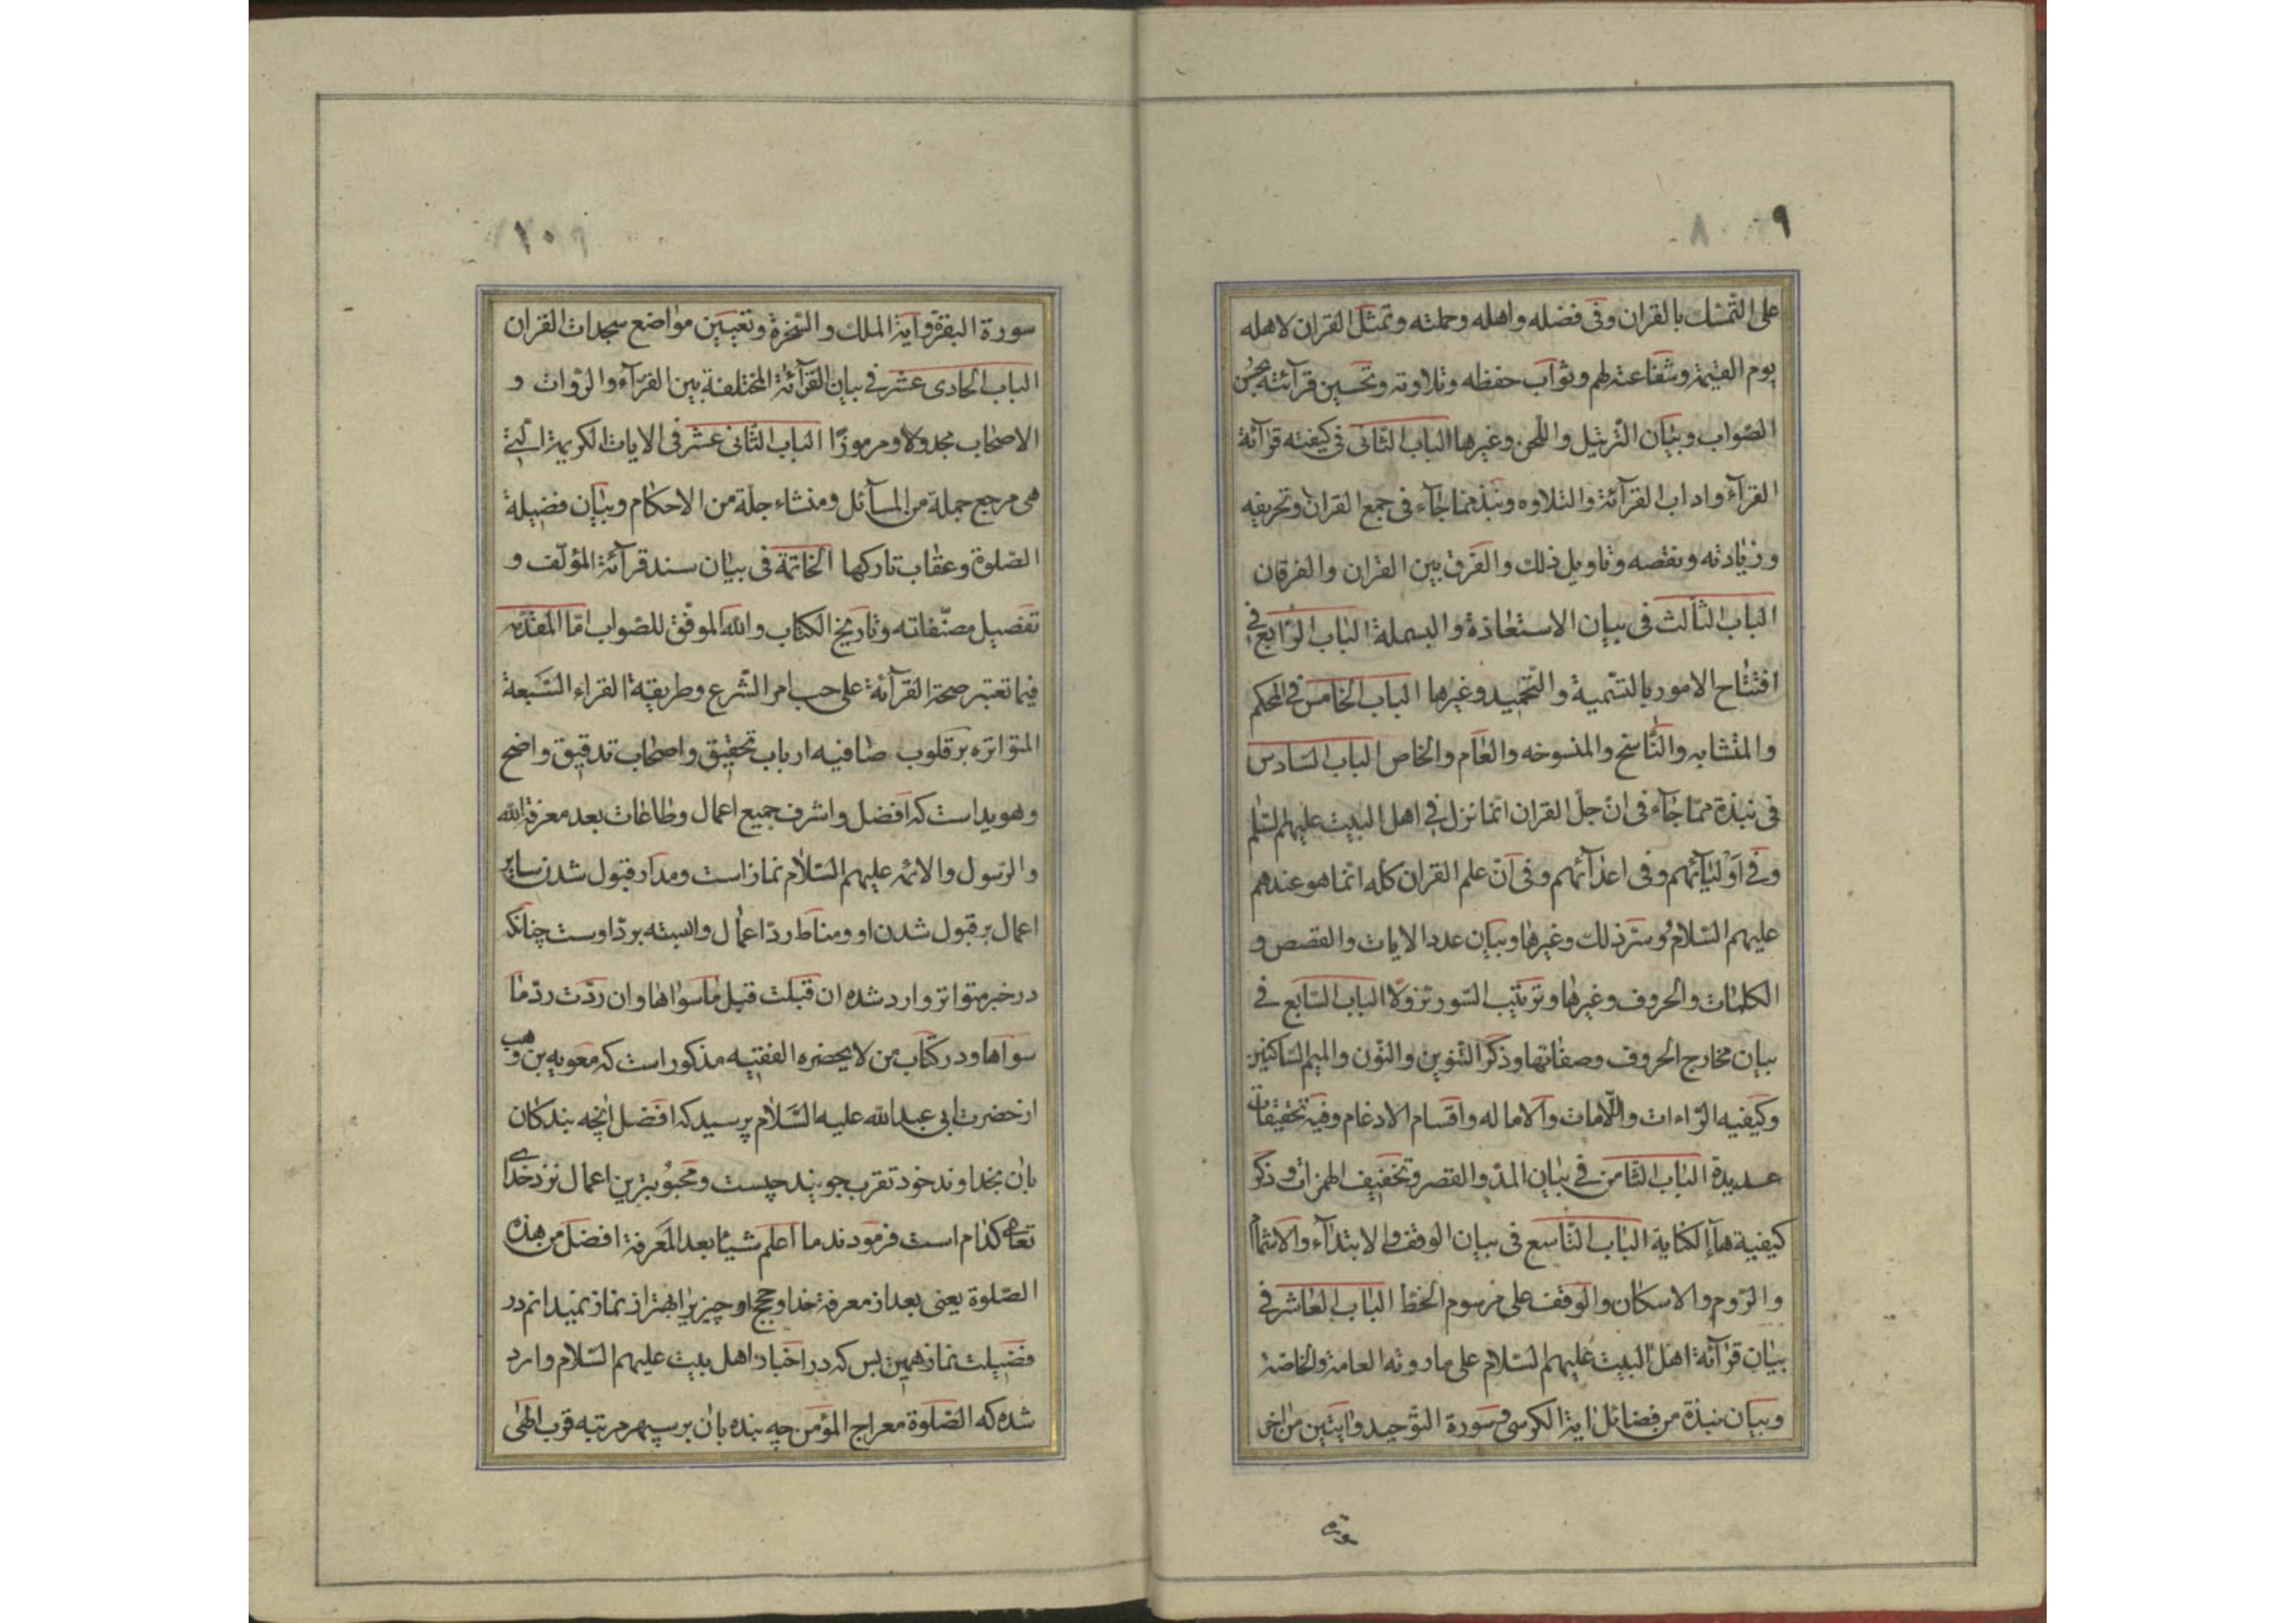 ۹
۸
على التمسّك بالقران وفى فضله واهله وحملته وتمثّل القران لاهله
يوم القيمة وشفاعته لهم وثوآب حفظه وتلاوته وتحسين قرآئته بحسن
الصّواب وبيٰان التّرتيل واللّحن وغيرها الباب الثّانى فى كيفيّته قرآئة
القرآء واداب القرآئة والتلاوه ونبذ ممّا جآء فى جمع القران وتحريفه
وزيٰادته ونقصه وتاويل ذلك والفرق بين القران والفرقان
الباب الثّالث فى بيان الاستعاذة والبسملة الباب الرّابع فى
افتتٰاح الامور بالتسّمية والتّحميد وغيرها الباب الخامس فى المحكم
والمتشابه والنّاسخ والمنسوخه والعٰام والخاص الباب السّادس
فى نبذة ممّا جٰآء فى انّ جلّ القران انّما نزل فى اهل البيت عليهم السّلم
وفى اوليٰآئهم وفى اعدٰآئهم وفى انّ علم القران كلّه انّما هو عندهم
عليهم السّلام وسّر ذلك وغيرها وبيان عدد الايات والقصص و
الكلمٰات والحروف وغيرهٰا وترتيب السّور نزولًا الباب السّابع فى
بيان مخارج الحروف وصفٰاتها وذكر التّنوين والنّون والميم السّاكنين
وكيفيه الرّاءات واللّامات والاماله واقسام الادغام وفيه تحقيقات
عديدة الباب الثّامن فى بيان المدّ والقصر وتخفيف الهمزات وذكر
كيفية هآء الكناية الباب التّاسع فى بيان الوقف والابتدٰآء والاشمام
والرّوم والاسكان والوقف على مرسوم الخطّ الباب العاشر فى
بيٰان قرٰآئة اهل البيت عليهم السّلام على ما روته العامة والخاصّة
وبيٰان نبذة من فضائل اية الكرسى وسورة التوّحيد وايتين من اخر
سورة
۱۰
سورة البقرة وآية الملك والسّخرة وتعيين موٰاضع سجدات القران
الباب الحادى عشر فى بيان القرآئة المختلفة بين القرّآء والرّوات و
الاصحٰاب مجدولا ومرموزًا الباب الثّانى عشر فى الايات الكريمة الّتى
هى مرجع جملة من المسآئل ومنشاء جلّة من الاحكام وبيان فضيلة
الصّلوة وعقٰاب تاركها الخاتمة فى بيٰان سند قرآئة المؤلّف و
تفصيل مصنّفاته وتاريخ الكتٰاب والله الموفّق للصّواب امّا المقدّمه
فيما تعتبر صحة القرآئة على حسب امر الشّرع وطريقة القراء السّبعة
المتواتره بر قلوب صٰافيه ارباب تحقيق واصحٰاب تدقيق واضح
وهويداست كه افضل واشرف جميع اعمال وطاعٰات بعد معرفة الله
والرّسول والائمّه عليهم السّلٰام نمازاست ومدار قبول شدن ساير
اعمال بر قبول شدن او ومناط ردّ اعمٰال وابسته بردّ اوست چنانكه
درخبر متواتر وارد شده ان قبلت قبل ماسواها وان ردّت ردّ مٰا
سواها ودر كتٰاب من لا يحضره الفقيه مذكور است كه معويه بن وهب
ازحضرت ابى عبدالله عليه السّلٰام پرسيد كه افضل انچه بندكان
بان بخداوند خود تقرب جويند چيست ومحبوبترين اعمال نزد خداى
تعالى كدٰام است فرمودند ما اعلم شيئا بعد المعرفة افضل من هذه
الصّلوة يعنى بعد از معرفة خدا وحجج او چيزيرا بهتر از نماز نميدانم در
فضيلت نماز همين بس كه در اخبار اهل بيت عليهم السّلام وارد
شده كه الصّلوة معراج المؤمن چه بنده بان بر سپهر مرتبه قرب الهٰى